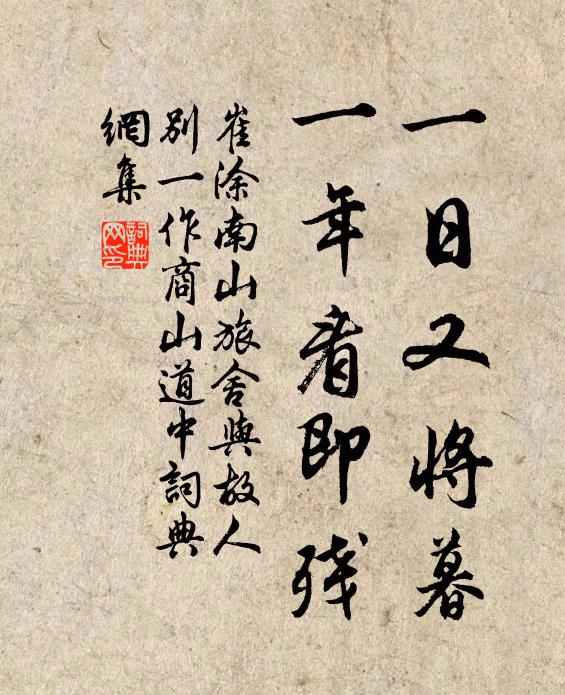 一日又將暮
一年看即殘
崔涂南山旅舍與故人
別一作商山道中詞典
網集
詞典
网印